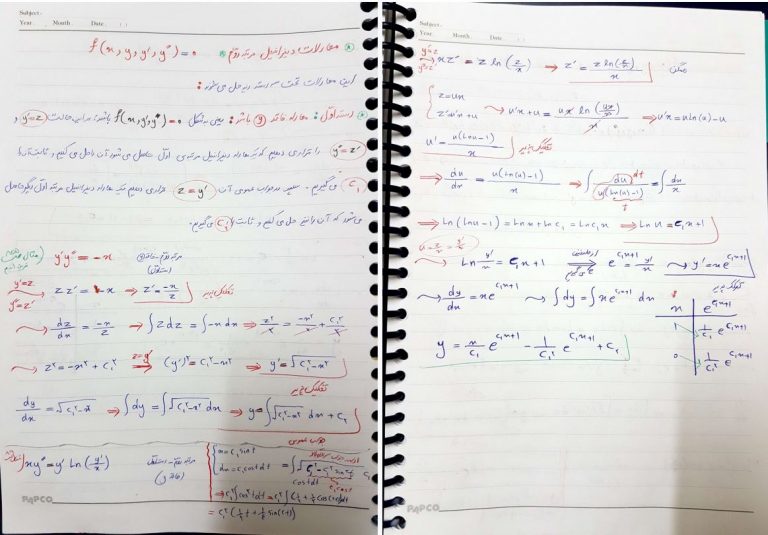 Subject:
Year. Month. Date.
معادلات دیفرانسیل مرتبه دوم f(x, y, y', y") = 0
این معادلات تحت سه دسته زیر حل می‌شود:
دسته اول: معادله فاقد y باشد: یعنی به شکل f(x, y', y") = 0 باشد. در این حالت y' = z و
y" = z' را قرار می‌دهیم که یک معادله دیفرانسیل مرتبه‌ی اول حاصل می‌شود آن را حل می‌کنیم و ثابت آن را
C₁ می‌گیریم. سپس در جواب عمومی آن z = y' قرار می‌دهیم یک معادله دیفرانسیل مرتبه اول دیگر حاصل
می‌شود که آن را نیز حل می‌کنیم و ثابت را C₂ می‌گیریم.
مثال y'y" = -x مرتبه دوم - فاقد y
y' = z
y" = z'
zz' = -x ⇒ z' = -x/z تفکیک پذیر
→ dz/dx = -x/z → ∫z dz = ∫-x dx ⇒ z²/2 = -x²/2 + C₁²/2
→ z² = -x² + C₁² z=y' ⇒ (y')² = C₁² - x² ⇒ y' = √(C₁² - x²)
تفکیک پذیر
dy/dx = √(C₁² - x²) ⇒ ∫dy = ∫√(C₁² - x²) dx → y = ∫√(C₁² - x²) dx + C₂
جواب عمومی
xy" = y' Ln(y'/x)
x = C₁ sin t
dx = C₁ cos t dt
cos t dt
⇒ C₁² ∫cos² t dt = C₁² ∫(1/2 + 1/2 cos(2t)) dt
= C₁² (1/2 t + 1/4 sin(2t))
PAPCO
Subject:
Year. Month. Date.
y' = z
y" = z'
xz' = z ln(z/x) ⇒ z' = z ln(z/x)/x همگن
z = ux
z' = u'x + u
→ u'x + u = ux ln(ux/x)/x ⇒ u'x = u ln(u) - u
u' = u(Ln u - 1)/x تفکیک پذیر
⇒ du/dx = u(Ln(u) - 1)/x ⇒ ∫ du/u(Ln(u) - 1) = ∫ dx/x
dt
t
⇒ Ln(Ln u - 1) = Ln x + Ln C₁ = Ln C₁x ⇒ Ln u = C₁x + 1
u = z/x = y'/x
→ Ln y'/x = C₁x + 1 ⇒ e^(C₁x+1) = y'/x → y' = x e^(C₁x+1)
→ dy/dx = x e^(C₁x+1) → ∫dy = ∫x e^(C₁x+1) dx
x e^(C₁x+1)
1 1/C₁ e^(C₁x+1)
0 1/C₁² e^(C₁x+1)
y = x/C₁ e^(C₁x+1) - 1/C₁² e^(C₁x+1) + C₂
PAPCO